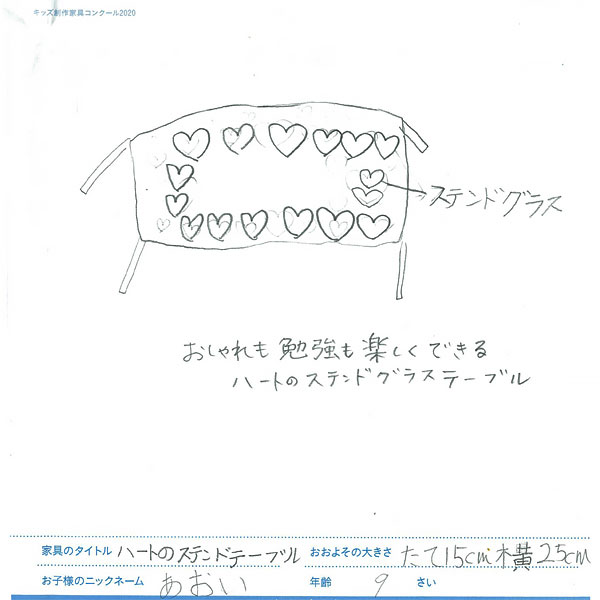 キッズ創作家具コンクール2020
ステンドグラス
おしゃれも勉強も楽しくできる
ハートのステンドグラステーブル
家具のタイトル ハートのステンドテーブル おおよその大きさ たて15cm 横25cm
お子様のニックネーム あおい 年齢 9 さい